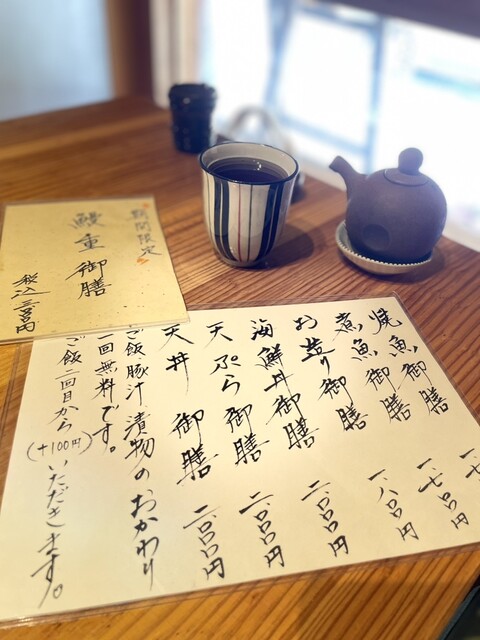 焼魚御膳 一、
煮魚御膳 一、七〇〇円
お造り御膳 一、八〇〇円
海鮮丼御膳 二、〇〇〇円
天ぷら御膳 二、〇〇〇円
天丼 御膳 二、〇〇〇円
ご飯豚汁漬物のおかわり
一回無料です。
ご飯二回目から(+100円)いただきます。
期間限定
鰻重御膳
税込